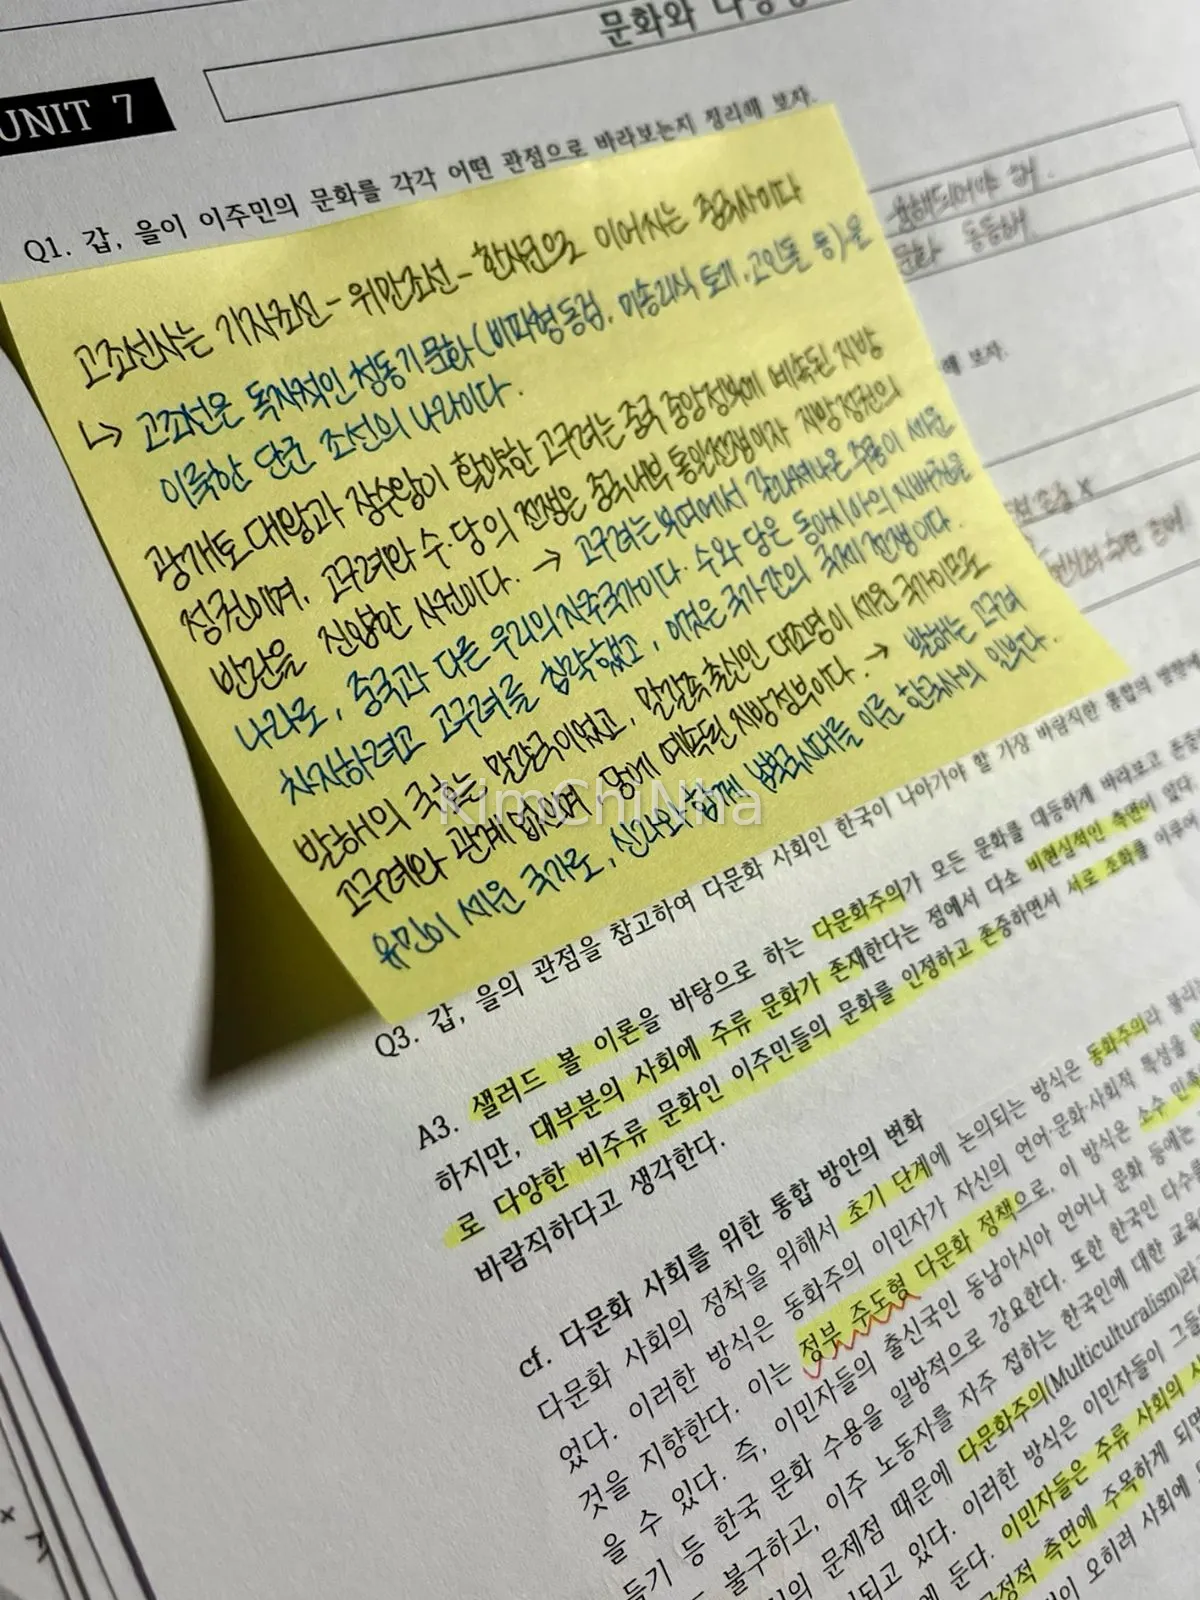 문화와 다양성
UNIT 7
Q1. 갑, 을이 이주민의 문화를 각각 어떤 관점으로 바라보는지 정리해 보자.
고조선사는 기자조선 - 위만조선 - 한사군으로 이어지는 중국사이다
↳ 고조선은 독자적인 청동기 문화(비파형동검, 미송리식 토기, 고인돌 등)을
이룩한 단군 조선의 나라이다.
광개토대왕과 장수왕이 활약한 고구려는 중국 중앙정부에 예속된 지방
정권이며, 고구려와 수·당의 전쟁은 중국내부 통일전쟁이자 지방정권의
반란을 진압한 사건이다. → 고구려는 부여에서 갈라져나온 주몽이 세운
나라로, 중국과 다른 우리의 자주국가이다. 수와 당은 동아시아의 지배권을
차지하려고 고구려를 침략했고, 이것은 국가간의 국제 전쟁이다.
발해의 국호는 말갈국이었고, 말갈족 출신인 대조영이 세운 국가이므로
고구려와 관계 없으며, 당에 예속된 지방정부이다. → 발해는 고구려
유민이 세운 국가로, 신라와 함께 남북국시대를 이룬 한국사의 일부다.
문화 동등해
해 보자.
KimChiNha
Q3. 갑, 을의 관점을 참고하여 다문화 사회인 한국이 나아가야 할 가장 바람직한 통합의 방향에
A3. 샐러드 볼 이론을 바탕으로 하는 다문화주의가 모든 문화를 대등하게 바라보고 존중
하지만, 대부분의 사회에 주류 문화가 존재한다는 점에서 다소 비현실적인 측면이 있다.
로 다양한 비주류 문화인 이주민들의 문화를 인정하고 존중하면서 서로 조화를 이루어
바람직하다고 생각한다.
cf. 다문화 사회를 위한 통합 방안의 변화
다문화 사회의 정착을 위해서 초기 단계에 논의되는 방식은 동화주의라 불리는
었다. 이러한 방식은 동화주의 이민자가 자신의 언어·문화·사회적 특성을
것을 지향한다. 이는 정부 주도형 다문화 정책으로, 이 방식은 소수 민족
을 수 있다. 즉, 이민자들의 출신국인 동남아시아 언어나 문화 등에는
듣기 등 한국 문화 수용을 일방적으로 강요한다. 또한 한국인 다수
불구하고, 이주 노동자를 자주 접하는 한국인에 대한 교육
의 문제점 때문에 다문화주의(Multiculturalism)라
되고 있다. 이러한 방식은 이민자들이 그들
에 둔다. 이민자들은 주류 사회의
긍정적 측면에 주목하게 되면
오히려 사회에